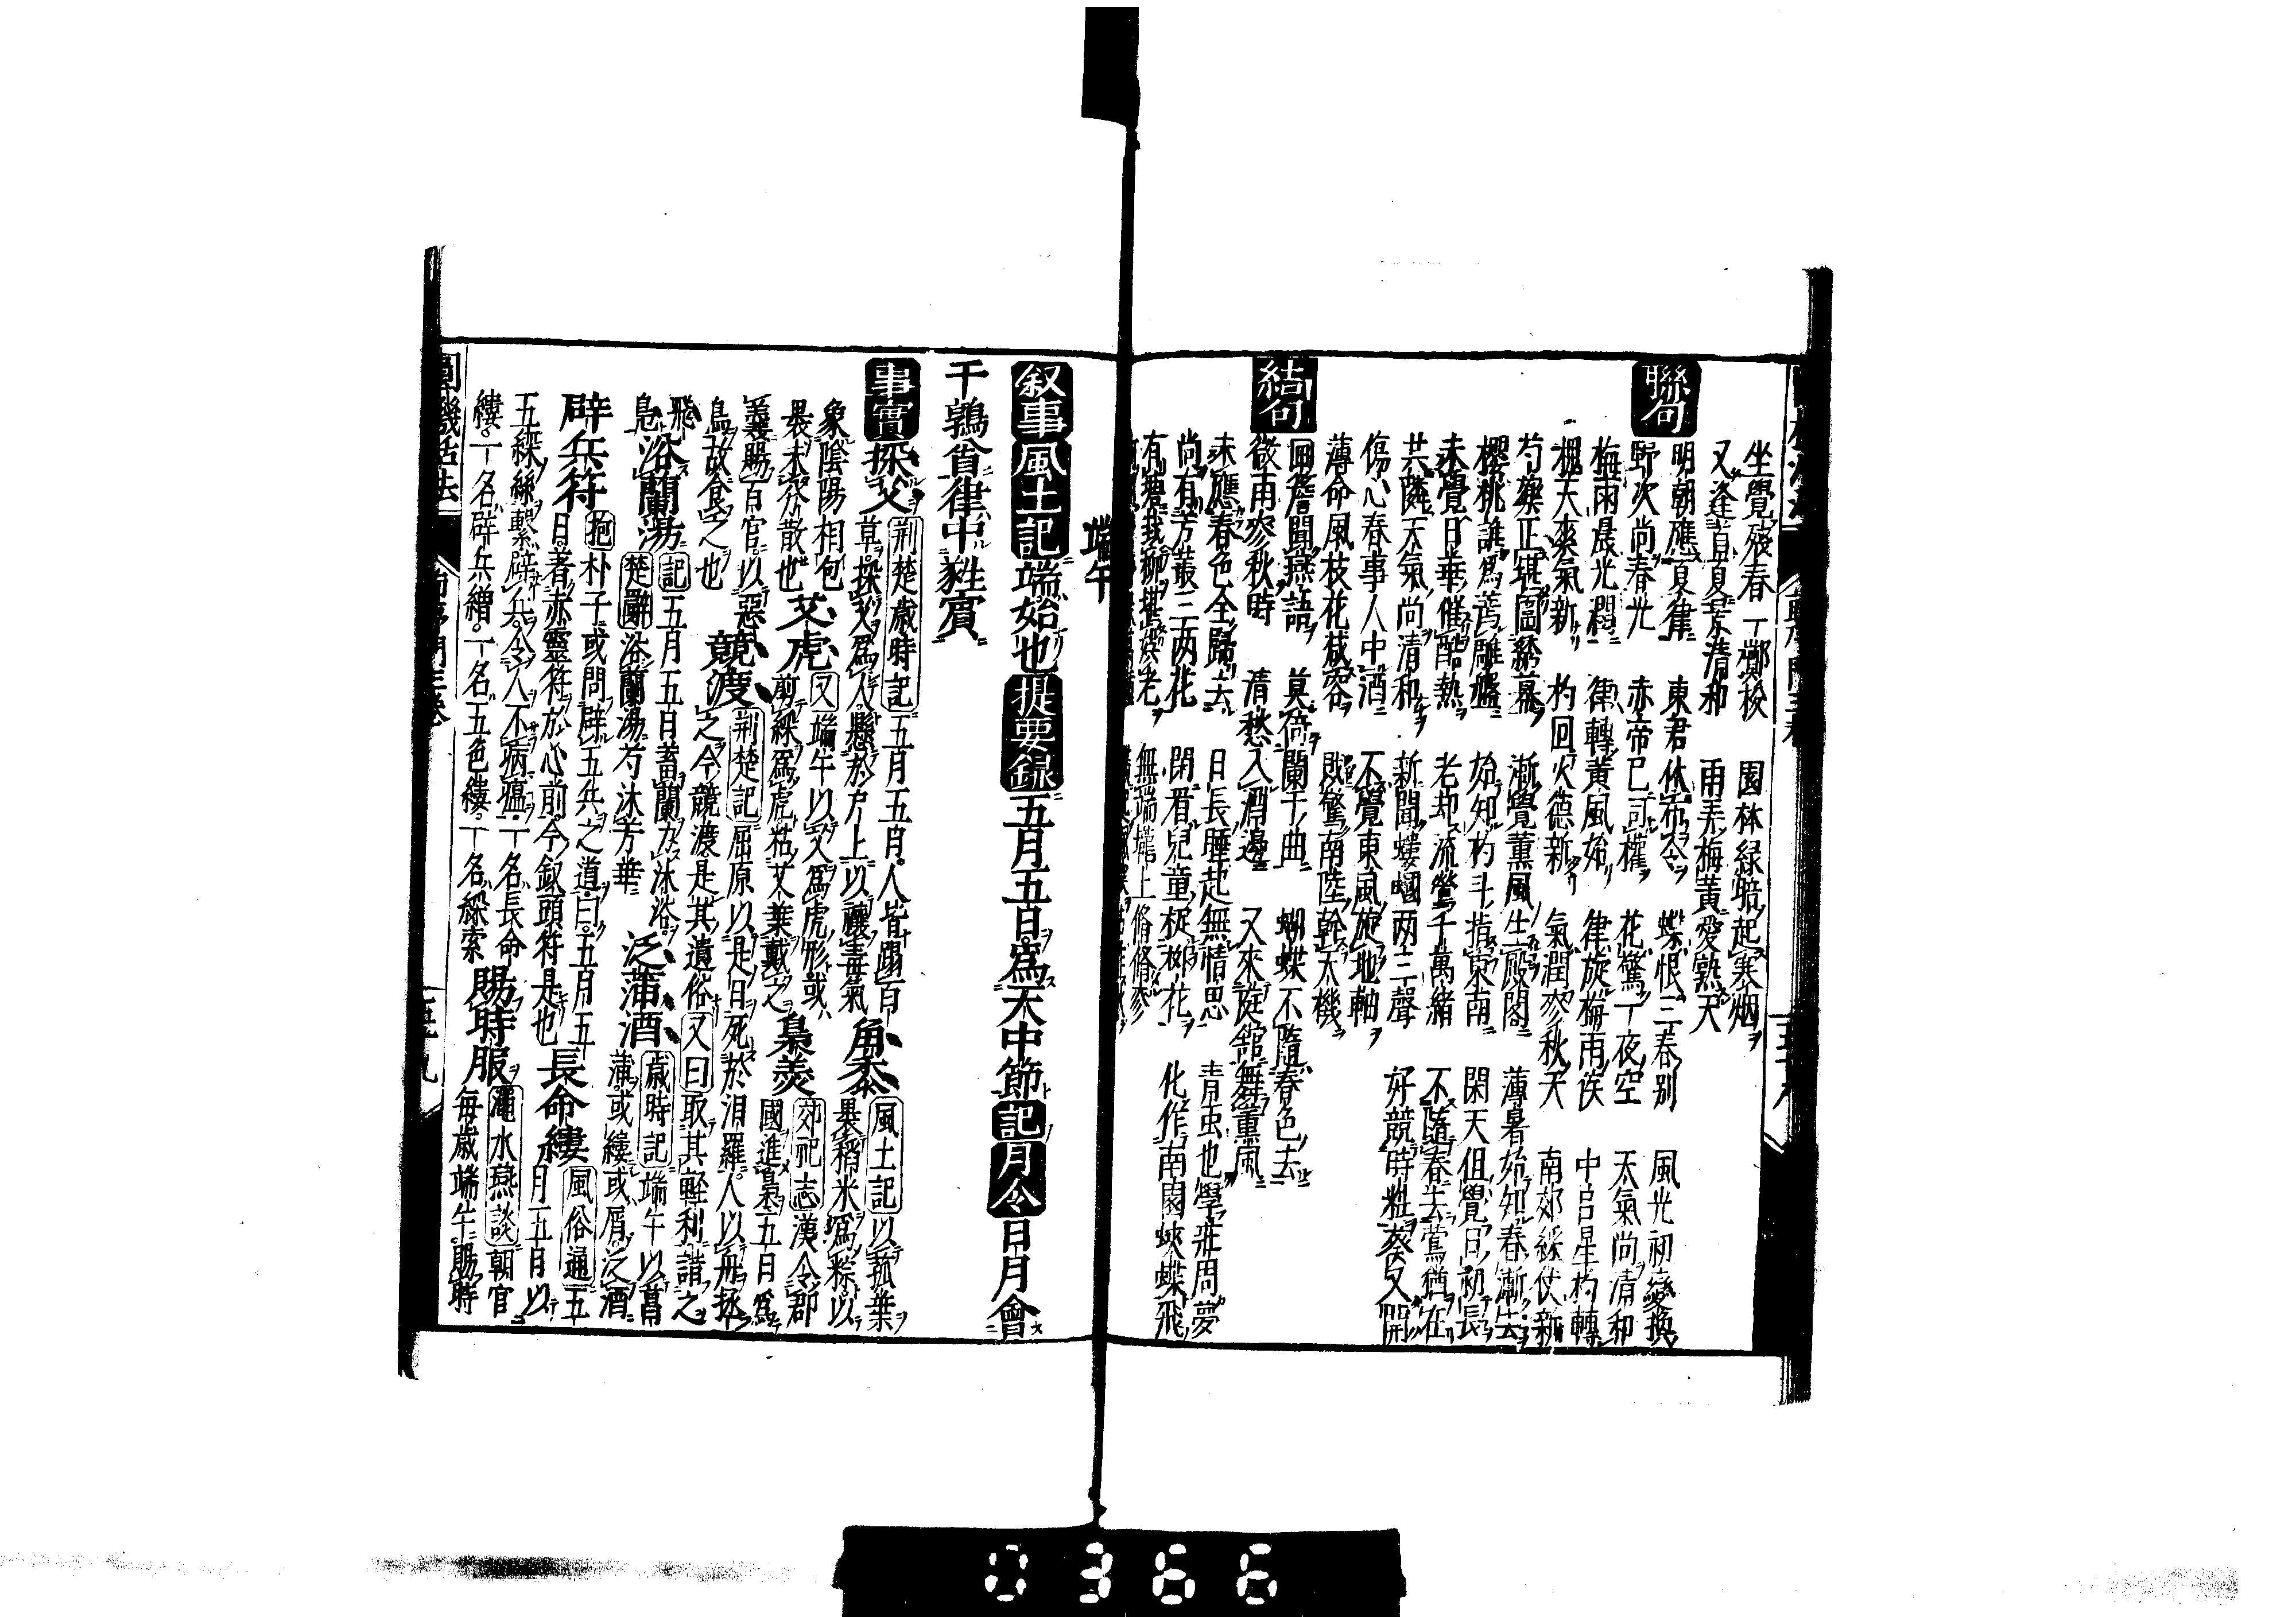 坐覺殘春一擲梭　園林綠暗起寒烟
又逢首夏景清和　雨弄梅黃愛熟天
聯句
明朝應夏律　東君休布令　蝶恨三春别　風光初變換
野次尚春光　赤帝已司權　花驚一夜空　天氣尚清和
梅雨晨光潤　律轉黃風始　律旋梅雨候　中呂星杓轉
槐天爽氣新　杓回火德新　氣潤麥秋天　南郊綵仗新
芍藥正堪圖綉幕　漸覺薰風生殿閣　薄暑始知春漸去
櫻桃誰爲薦雕盤　始知杓斗指東南　閑天但覺日初長
未覺日華催酷熱　老却流鶯千萬緒　不隨春去鶯猶在
共隣天氣尚清和　新聞螻蟈兩三聲　好競時粧葵又開
傷心春事人中酒　不覺東風旋地軸
薄命風枝花減容　既驚南陸斡天機
結句
回簷聞燕語　莫倚闌干曲　蝴蝶不隨春色去
微雨麥秋時　清愁入酒邊　又來庭舘舞薰風
未應春色全歸去　日長睡起無情思　青虫也學莊周夢
尚有芳叢三兩花　閑看兒童捉柳花　化作南園蛺蝶飛
端午
叙事風土記端始也提要録五月五日爲天中節記月令日月會
于鶉首律中蕤賓
事實採艾荆楚歲時記五月五日人皆蹋百
草採艾爲人懸於戶上以禳毒氣角黍風土記以菰葉
裹稻米爲粽以
象陰陽相包
裹未分散也艾虎又端午以艾爲虎形或
剪綵爲虎粘艾葉戴之梟羹郊祀志漢令郡
國進梟五月爲
羹賜百官以惡
鳥故食之也競渡荆楚記屈原以是日死於汨羅人以舟拯
之今競渡是其遺俗又曰取其輕利謂之
飛
鳧浴蘭湯記五月五日蓄蘭爲沐浴
楚辭浴蘭湯兮沐芳華泛蒲酒歲時記端午以菖
蒲或縷或屑泛酒
辟兵符抱朴子或問辟五兵之道曰五月五
日著赤靈符於心前今釵頭符是也長命縷風俗通五
月五日以
五綵絲繫辟兵令人不病瘟一名長命
縷一名辟兵繒一名五色縷一名綵索賜時服澠水燕談朝官
每歲端午賜時
0366